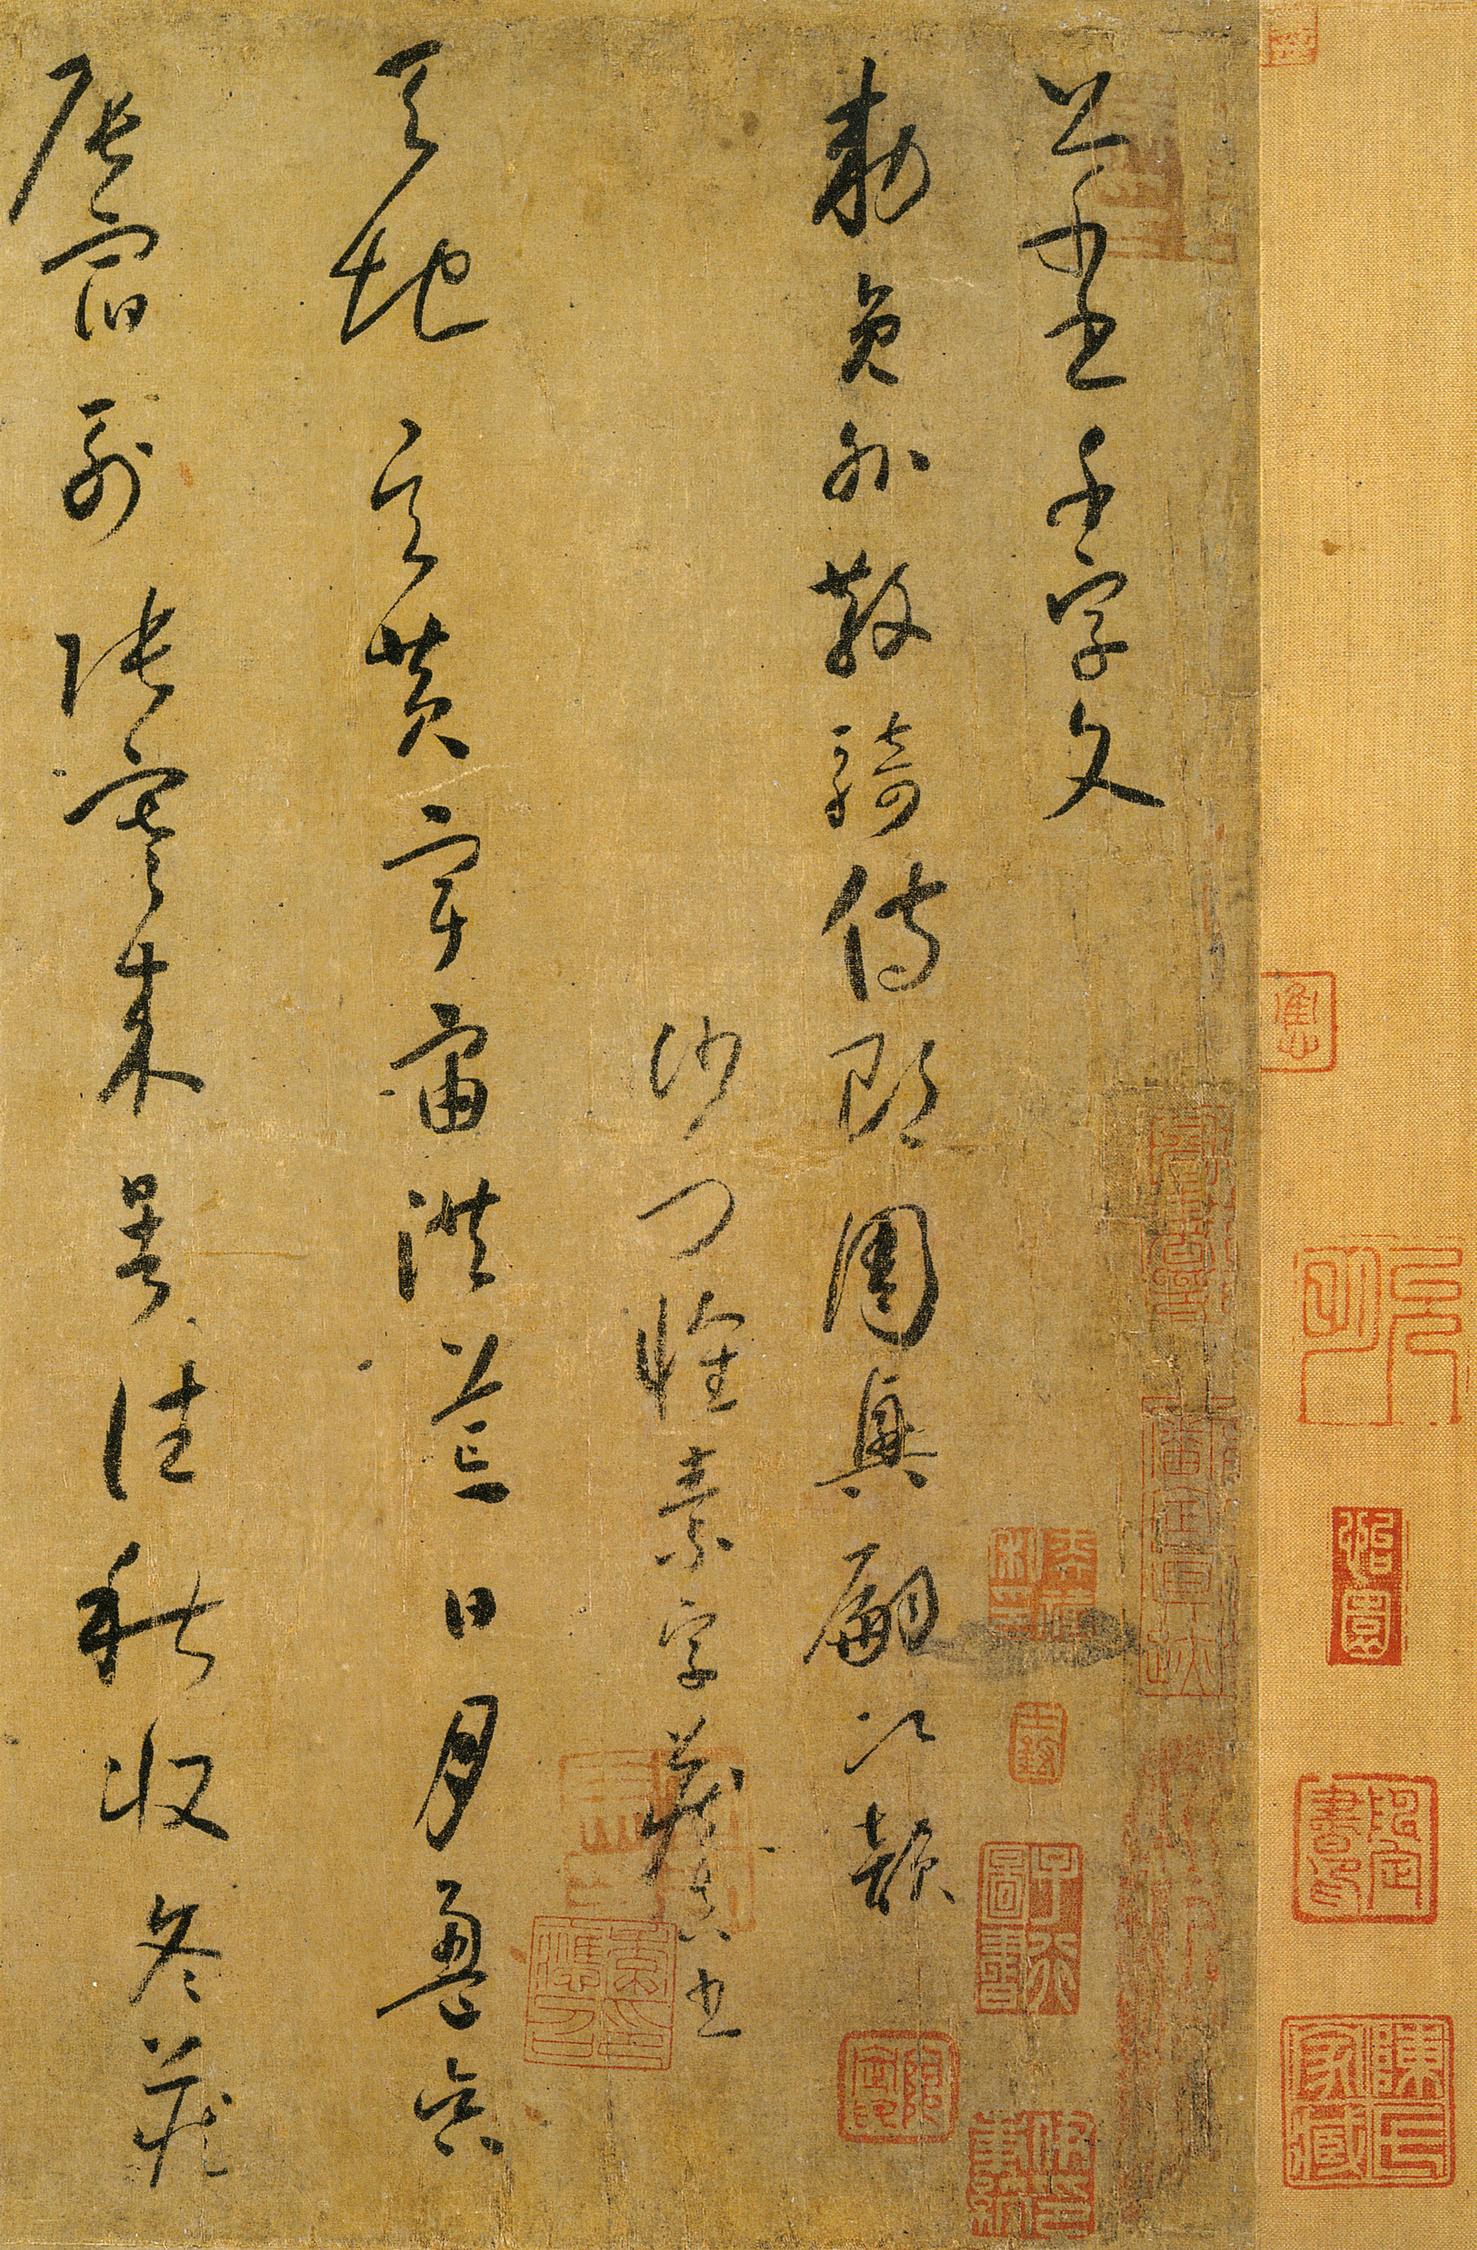 草書千字文
勅員外散騎侍郎周興嗣次韻
沙門懷素字藏真書
天地玄黃宇宙洪荒日月盈昃
辰宿列張寒來暑往秋收冬藏
陳氏家藏